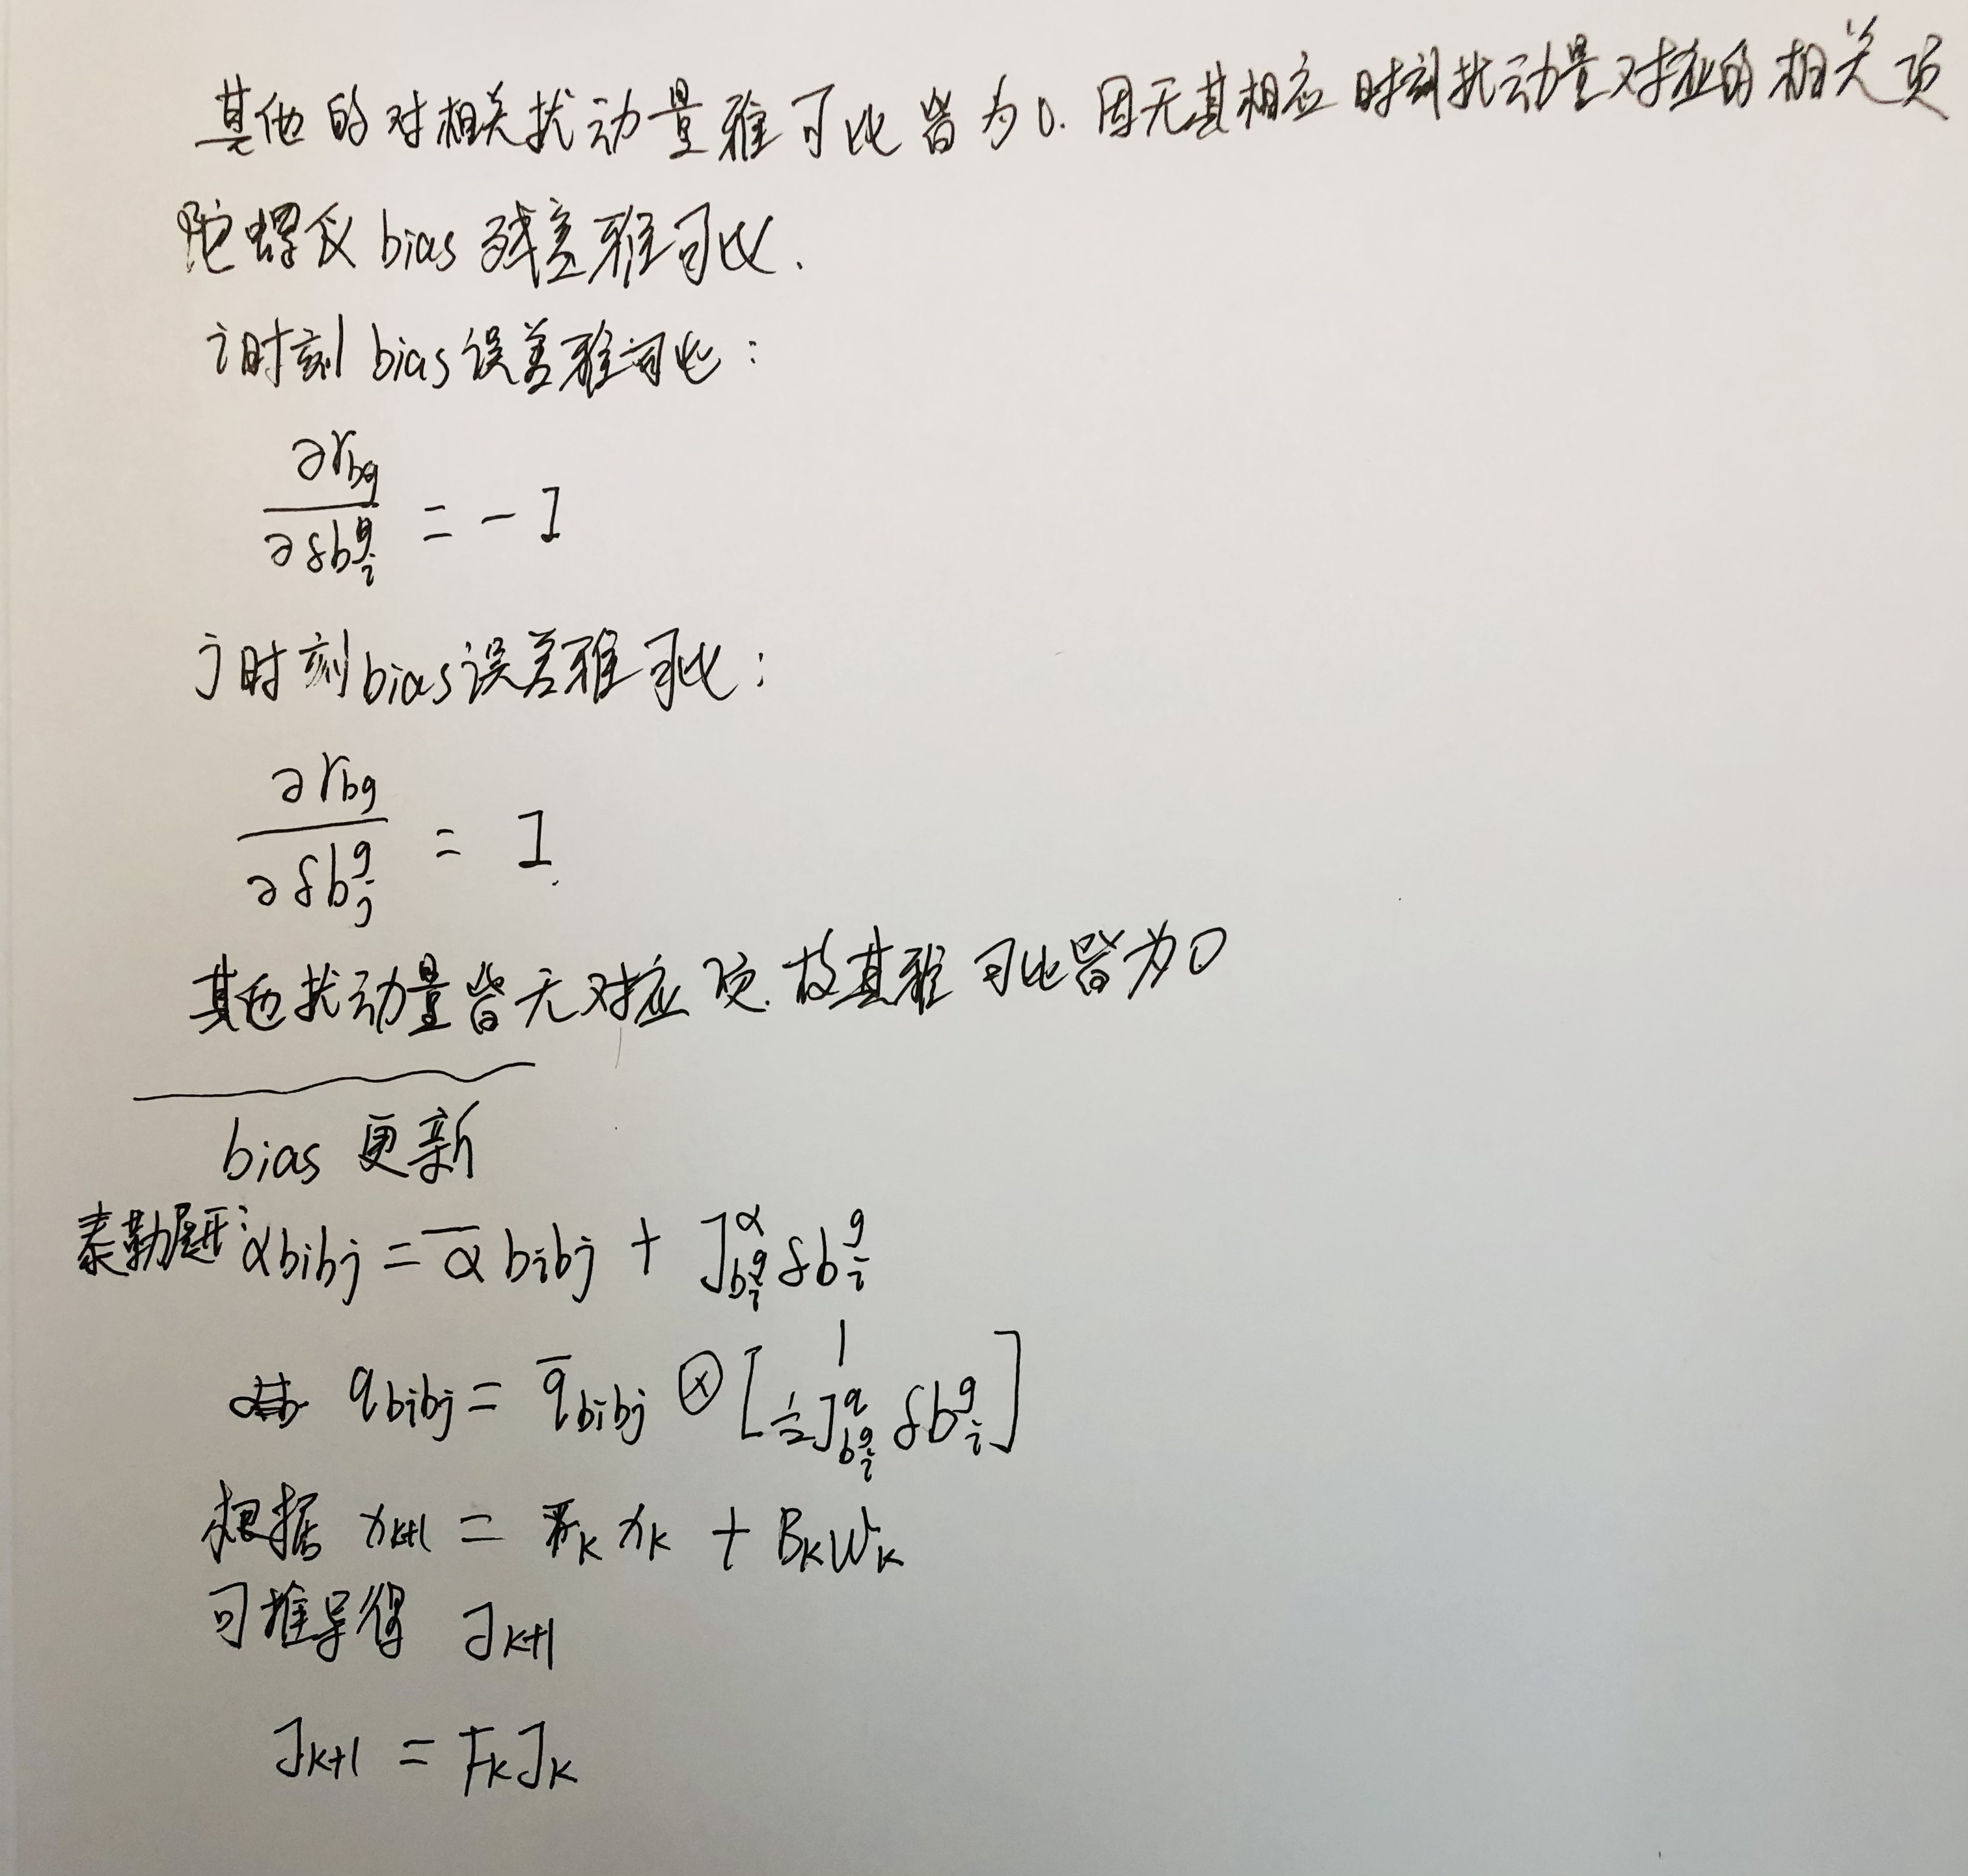 其他的对相关扰动量雅可比皆为0. 因无其相应时刻扰动量对应的相关项
陀螺仪bias残差雅可比.
i时刻bias误差雅可比:
∂r_bg / ∂δb_i^g = -I
j时刻bias误差雅可比:
∂r_bg / ∂δb_j^g = I
其他扰动量皆无对应项. 故其雅可比皆为0
bias 更新
泰勒展开: α_bibj = ᾱ_bibj + J^α_{b_i^g} δb_i^g
q_bibj = q̄_bibj ⊗ [1 ½J^q_{b_i^g} δb_i^g]
根据 x_k+1 = F_k x_k + B_k w_k
可推导得 J_k+1
J_k+1 = F_k J_k